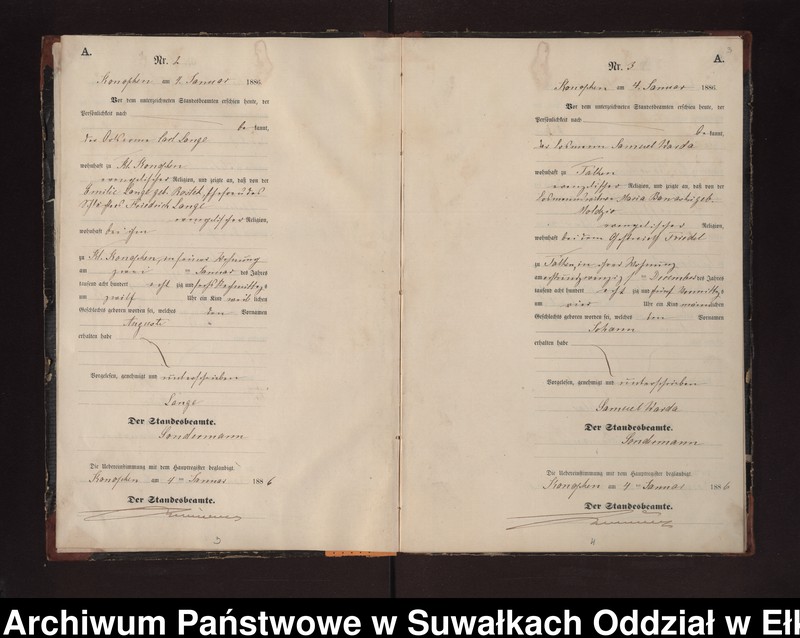 A.
Nr. 2
Konopken am 2. Januar 1886
Vor dem unterzeichneten Standesbeamten erschien heute, der
Persönlichkeit nach
be kannt,
Carl Lange
wohnhaft zu Kl. Konopken
evangelischer Religion, und zeigte an, daß von der
Emilie Lange geb.
Friedrich Lange
evangelischer Religion,
wohnhaft bei ihm
zu Kl. Konopken, in seiner Wohnung
am zwei ten Januar des Jahres
tausend acht hundert acht zig und sechs Nachmittags
um zwölf Uhr ein Kind weib lichen
Geschlechts geboren worden sei, welches den Vornamen
Auguste
erhalten habe
Vorgelesen, genehmigt und unterschrieben
Lange
Der Standesbeamte.
Sondermann
Die Uebereinstimmung mit dem Hauptregister beglaubigt
Konopken am 4ten Januar 1886
Der Standesbeamte.
3
A.
Nr. 3
Konopken am 4. Januar 1886
Vor dem unterzeichneten Standesbeamten erschien heute, der
Persönlichkeit nach
be kannt,
der Losmann Samuel Warda
wohnhaft zu
evangelischer Religion, und zeigte an, daß von der
Maria geb.
evangelischer Religion,
wohnhaft bei dem
zu in ihrer Wohnung
am ten Dezember des Jahres
tausend acht hundert acht zig und fünf Vormittags
um vier Uhr ein Kind männlichen
Geschlechts geboren worden sei, welches den Vornamen
Johann
erhalten habe
Vorgelesen, genehmigt und unterschrieben
Samuel Warda
Der Standesbeamte.
Sondermann
Die Uebereinstimmung mit dem Hauptregister beglaubigt
Konopken am 4ten Januar 1886
Der Standesbeamte.
4
Archiwum Państwowe w Suwałkach Oddział w Ełk